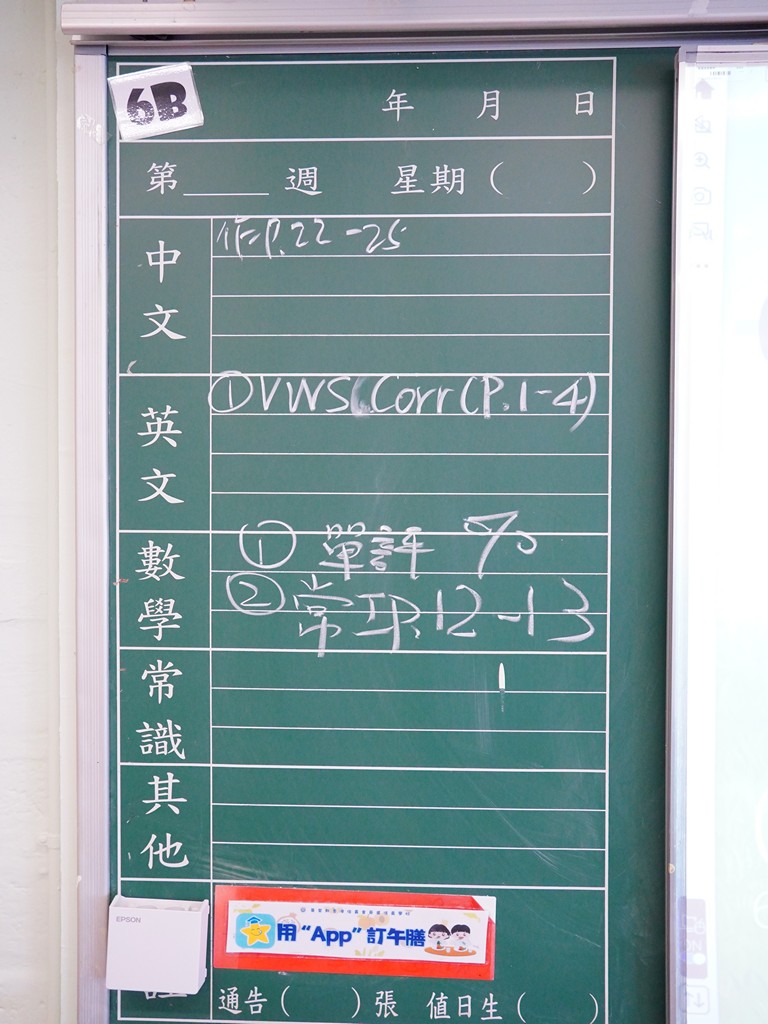 6B
年 月 日
第____週 星期( )
中文
作P.22-25
英文
①VWS Corr(P.1-4)
數學
① 單評
② 常P.12-13
常識
其他
EPSON
用“App”訂午膳
通告( )張 值日生( )